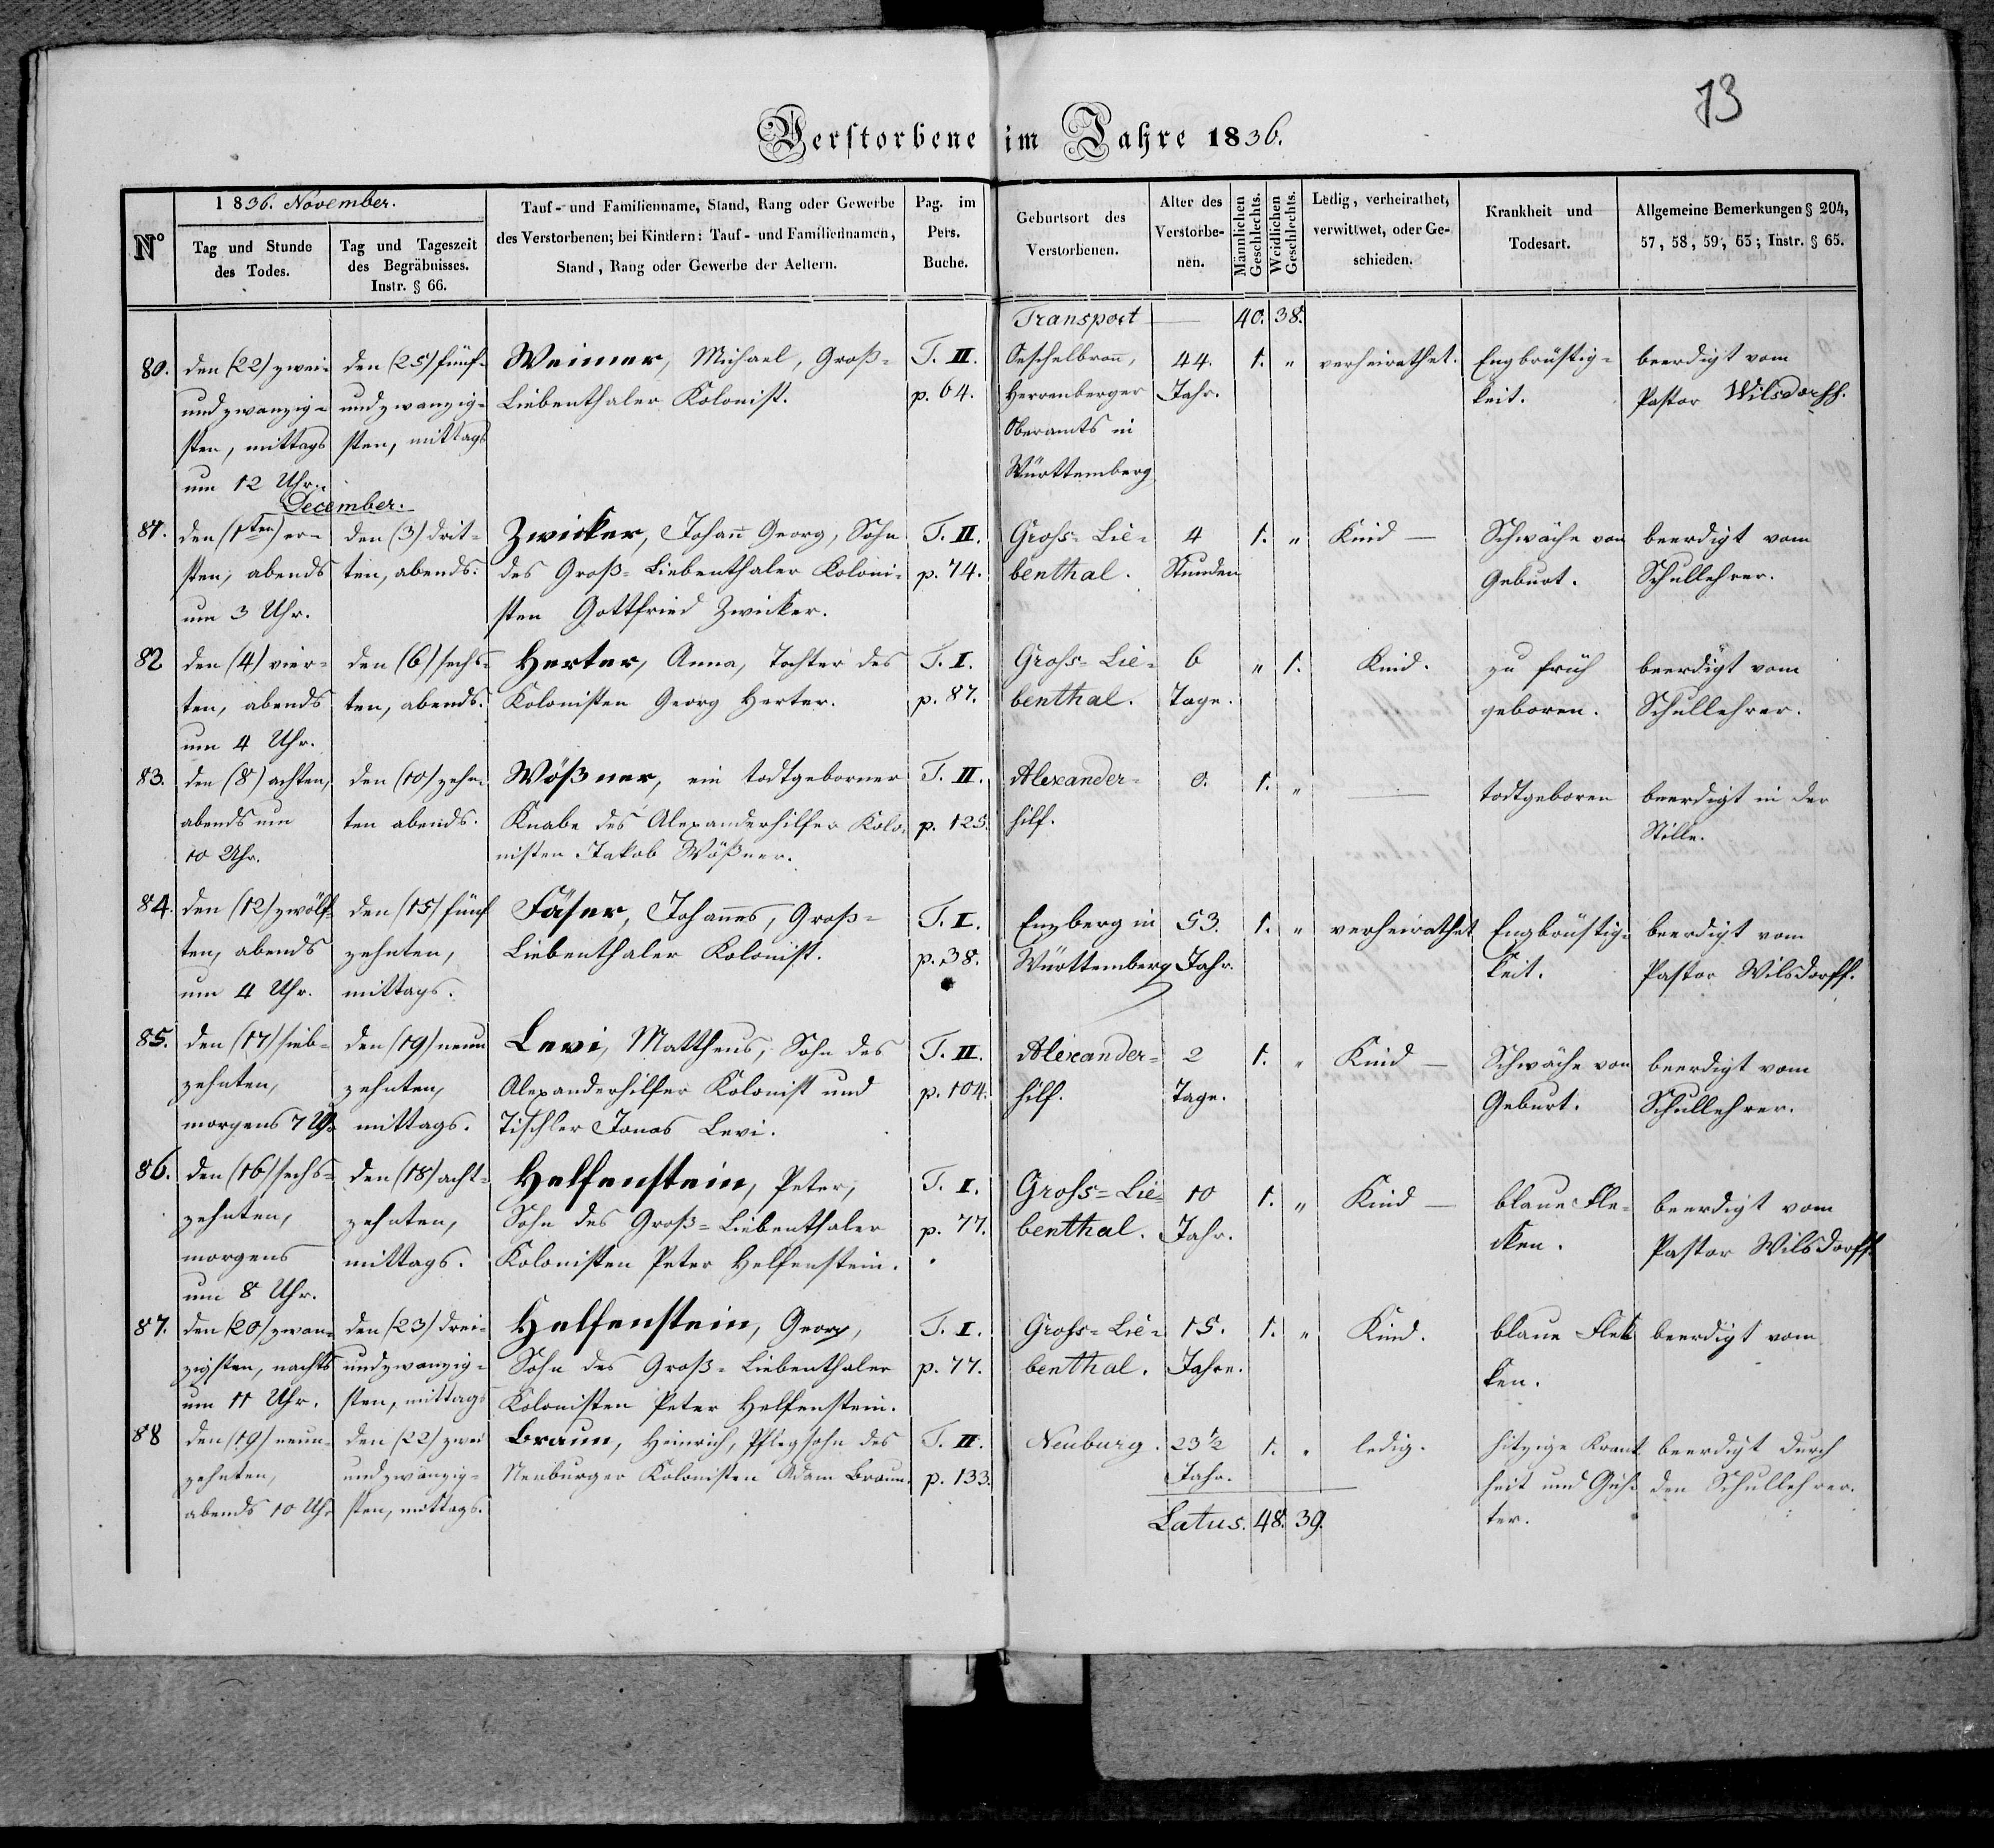 73
Verstorbene im Jahre 1836.
N°
1836. November.
Tag und Stunde
des Todes.
Tag und Tageszeit
des Begräbnisses.
Instr. § 66.
Tauf- und Familienname, Stand, Rang oder Gewerbe
des Verstorbenen; bei Kindern: Tauf- und Familiennamen,
Stand, Rang oder Gewerbe der Aeltern.
Pag. im
Pers.
Buche.
Geburtsort des
Verstorbenen.
Alter des
Verstorbe-
nen.
Männlichen
Geschlechts.
Weiblichen
Geschlechts.
Ledig, verheirathet,
verwittwet, oder Ge-
schieden.
Krankheit und
Todesart.
Allgemeine Bemerkungen § 204,
57, 58, 59, 63; Instr. § 65.
Transport — 40. 38.
80.
den (22) zwei-
und zwanzig-
sten, mittags
um 12 Uhr.
den (25) fünf-
und zwanzig-
sten, mittags
Weimer, Michael, Groß-
Liebenthaler Kolonist.
T. II.
p. 64.
Oeschelbronn,
Herrenberger
Oberamts in
Württemberg
44.
Jahr.
1. "
verheirathet.
Engbrüstig-
keit.
beerdigt vom
Pastor Wilsdorff.
December.
81.
den (1ten) er-
sten, abends
um 3 Uhr.
den (3) drit-
ten, abends.
Zwicker, Johann Georg, Sohn
des Groß-Liebenthaler Koloni-
sten Gottfried Zwicker.
T. II.
p. 74.
Gross-Lie-
benthal.
4
Stunden
1. "
Kind —
Schwäche von
Geburt.
beerdigt vom
Schullehrer.
82
den (4) vier-
ten, abends
um 4 Uhr.
den (6) sechs-
ten, abends.
Herter, Anna, Tochter des
Kolonisten Georg Herter.
T. I.
p. 87.
Gross-Lie-
benthal.
6
Tage.
" 1.
Kind.
zu früh
geboren.
beerdigt vom
Schullehrer.
83.
den (8) achten,
abends um
10 Uhr.
den (10) zehn-
ten abends.
Wößner, ein todtgeborner
Knabe des Alexanderhilfer Kolo-
nisten Jakob Wößner.
T. II.
p. 125.
Alexander-
hilf.
0.
1. "
—
todtgeboren
beerdigt in der
Stille.
84.
den (12) zwölf-
ten, abends
um 4 Uhr.
den (15) fünf
zehnten,
mittags.
Fäser, Johannes, Groß-
Liebenthaler Kolonist.
T. I.
p. 38.
Enzberg in
Württemberg
53.
Jahr.
1. "
verheirathet
Engbrüstig-
keit.
beerdigt vom
Pastor Wilsdorff.
85.
den (17) sieb-
zehnten,
morgens 7 U.
den (19) neun
zehnten,
mittags.
Levi, Mattheus, Sohn des
Alexanderhilfer Kolonist und
Tischler Jonas Levi.
T. II.
p. 104.
Alexander-
hilf.
2
Tage.
1. "
Kind —
Schwäche von
Geburt.
beerdigt vom
Schullehrer.
86.
den (16) sechs-
zehnten,
morgens
um 8 Uhr.
den (18) acht-
zehnten,
mittags.
Helfenstein, Peter,
Sohn des Groß-Liebenthaler
Kolonisten Peter Helfenstein.
T. I.
p. 77.
Gross-Lie-
benthal.
10
Jahr.
1. "
Kind —
blaue Fle-
cken.
beerdigt vom
Pastor Wilsdorff.
87.
den (20) zwan-
zigsten, nachts
um 11 Uhr.
den (23) drei-
und zwanzig-
sten, mittags
Helfenstein, Georg,
Sohn des Groß-Liebenthaler
Kolonisten Peter Helfenstein.
T. I.
p. 77.
Gross-Lie-
benthal.
15.
Jahre.
1. "
Kind.
blaue Flek
ken.
beerdigt vom
88
den (19) neun-
zehnten,
abends 10 Uhr
den (22) zwei
und zwanzig-
sten, mittags.
Braun, Heinrich, Pflegsohn des
Neuburger Kolonisten Adam Braun.
T. II.
p. 133.
Neuburg.
23 1/2
Jahr.
1. "
ledig.
hitzige Krank
heit und
ter.
beerdigt durch
den Schullehrer.
Latus. 48. 39.